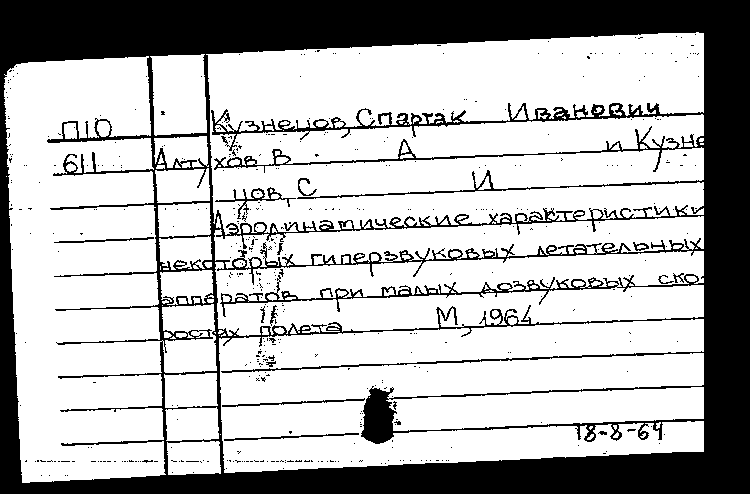 П10 Кузнецов, Спартак Иванович
611 Алтухов, В. А и Кузне
цов, С И
Аэродинамические характеристики
некоторых гиперзвуковых летательных
аппаратов при малых дозвуковых ско-
ростях полета. М, 1964
18-8-64